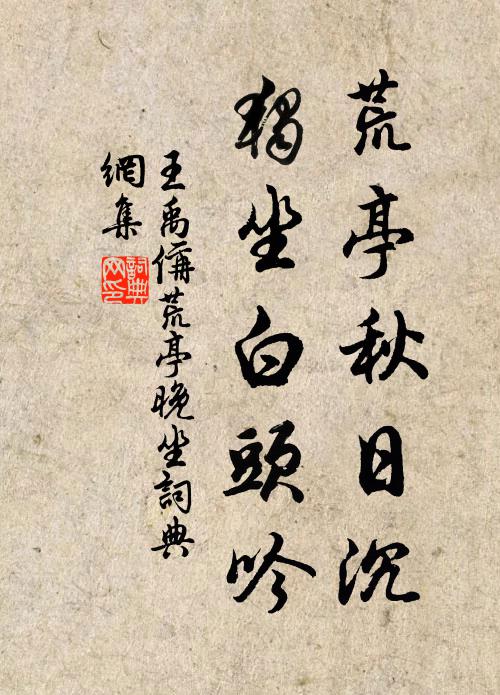 荒亭秋日沉
獨坐白頭吟
王禹偁荒亭晚坐詞典
網集
詞典網印